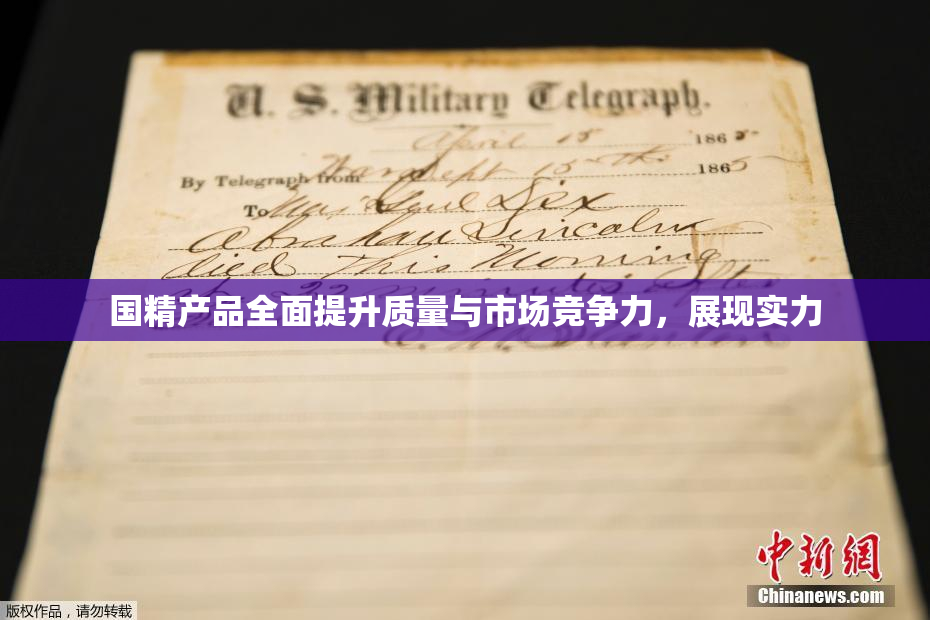 U. S. Military Telegraph.
April 15 1865
By Telegraph from War Dept 15th 1865
To Maj Genl Dix
Abraham Lincoln
died This Morning
22 minutes after
国精产品全面提升质量与市场竞争力，展现实力
中新網
Chinanews.com
版权作品，请勿转载